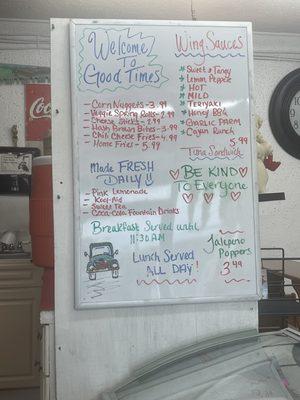 Welcome
To
Good Times
- Corn Nuggets - 3.99
- Veggie Spring Rolls - 2.99
- Cheese Sticks - 2.99
- Hash Brown Bites - 3.99
- Chili Cheese Fries - 4.99
- Home Fries - 5.99
Made FRESH
DAILY!
- Pink Lemonade
- Kool-Aid
- Sweet Tea
- Coca-Cola Fountain Drinks
Breakfast Served until
11:30 AM
Lunch Served
ALL DAY!
Wing Sauces
* Sweet & Tangy
* Lemon Pepper
* HOT
* MILD
* Teriyaki
* Honey BBQ
* GARLIC PARM
* Cajun Ranch
5.99
Tuna Sandwich
BE KIND
To Everyone
Jalapeno
Poppers
3.99
Coca